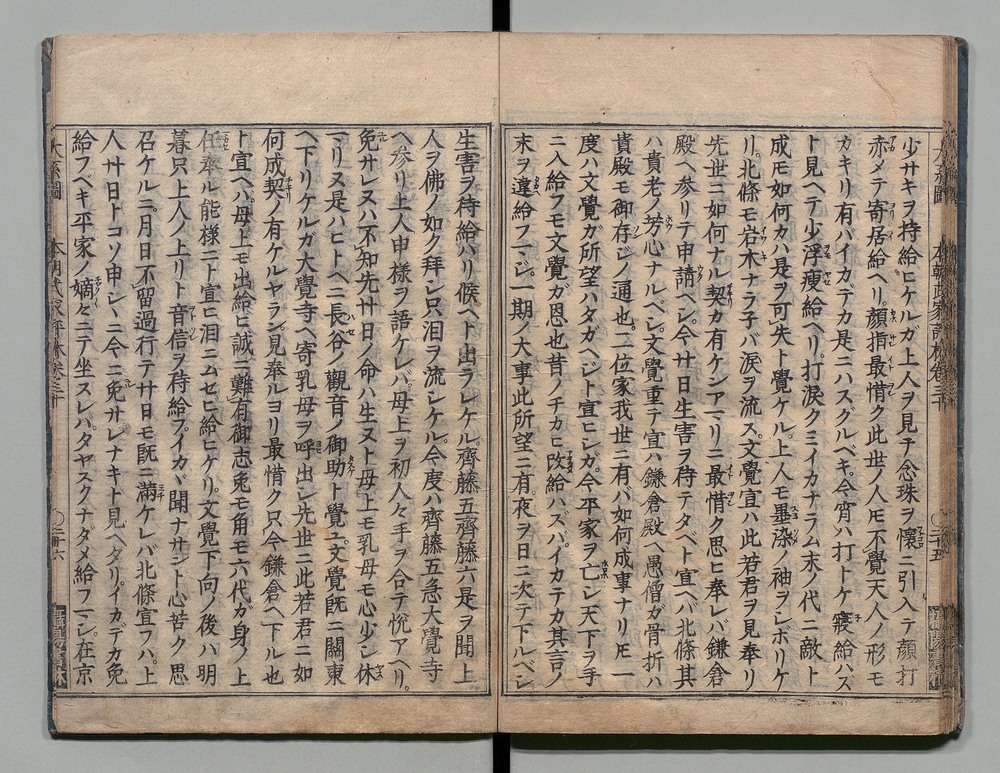 少サキヲ持給ヒケルガ上人ヲ見テ念珠ヲ懐ニ引入テ顔打
赤メテ寄居給ヘリ。顔指最惜ク此世ノ人トモ不覺天人ノ形モ
カキリ有バイカテカ是ニハスクルベキ。今宵ハ打トケ寢給ハズ
ト見ヘテ少浮瘦給ヘリ。打涙クミイカナラム末ノ代ニ敵ト
成モ如何カハ是ヲ可失ト覺ケル。上人モ墨染ノ袖ヲシボリケ
リ。北條モ岩木ナラ子バ涙ヲ流ス。文覺宣ハ此若君ヲ見奉リ
先世ニ如何ナル契カ有ケンアマリニ最惜ク思ヒ奉レバ鎌倉
殿ヘ参リテ申請ベシ。今廿日生害ヲ待テタベト宣ヘバ北條其
ハ貴老ノ芳心ナルベシ。文覺重テ宣ハ鎌倉殿ヘ愚僧ガ骨折ハ
貴殿モ御存シノ通也。二位家我世ニ有バ如何成事ナリトモ一
度ハ文覺ガ所望ハタガヘシト宣ヒシガ。今平家ヲ亡シ天下ヲ手
ニ入給フモ文覺ガ恩也昔ノチカヒ改給ハズバイカテカ其言ノ
末ヲ違給フマジ。一期ノ大事此所望ニ有。夜ヲ日ニ次テ下ルベシ
生害ヲ待給ハリ候ヘト出ラレケル。齊藤五齊藤六是ヲ聞上
人ヲ佛ノ如ク拜ミ只泪ヲ流シケル。今度ハ齊藤五急大覺寺
ヘ参リ上人申樣ヲ語ケレバ。母上ヲ初人々手ヲ合テ悦アヘリ。
免サレヌハ不知先廿日ノ命ハ生ヌト母上モ乳母モ心少シ休
マリヌ是ハヒトヘニ長谷ノ觀音ノ御助ト覺ユ。文覺既ニ關東
ヘ下リケルガ大覺寺ヘ寄乳母ヲ呼出シ先世ニ此若君ニ如
何成契ノ有ケルヤラン。見奉ルヨリ最惜ク只今鎌倉ヘ下ル也
ト宣ヘバ。母上モ出給ヒ誠ニ難有御志兎モ角モ六代ガ身ノ上
任奉ル能樣ニト宣ヒ泪ニムセヒ給ヒケリ。文覺下向ノ後ハ明
暮只上人ノ上リト音信ヲ待給フ。イカヾ聞ナサント心苦ク思
召ケルニ。月日不留過行テ廿日モ既ニ滿ケレバ北條宣フハ。上
人廿日トコソ申シヽニ今ニ免サレナキト見ヘタリ。イカテカ免
給フベキ平家ノ嫡々ニテ坐スレバ。タヤスクナダメ給フマシ。在京